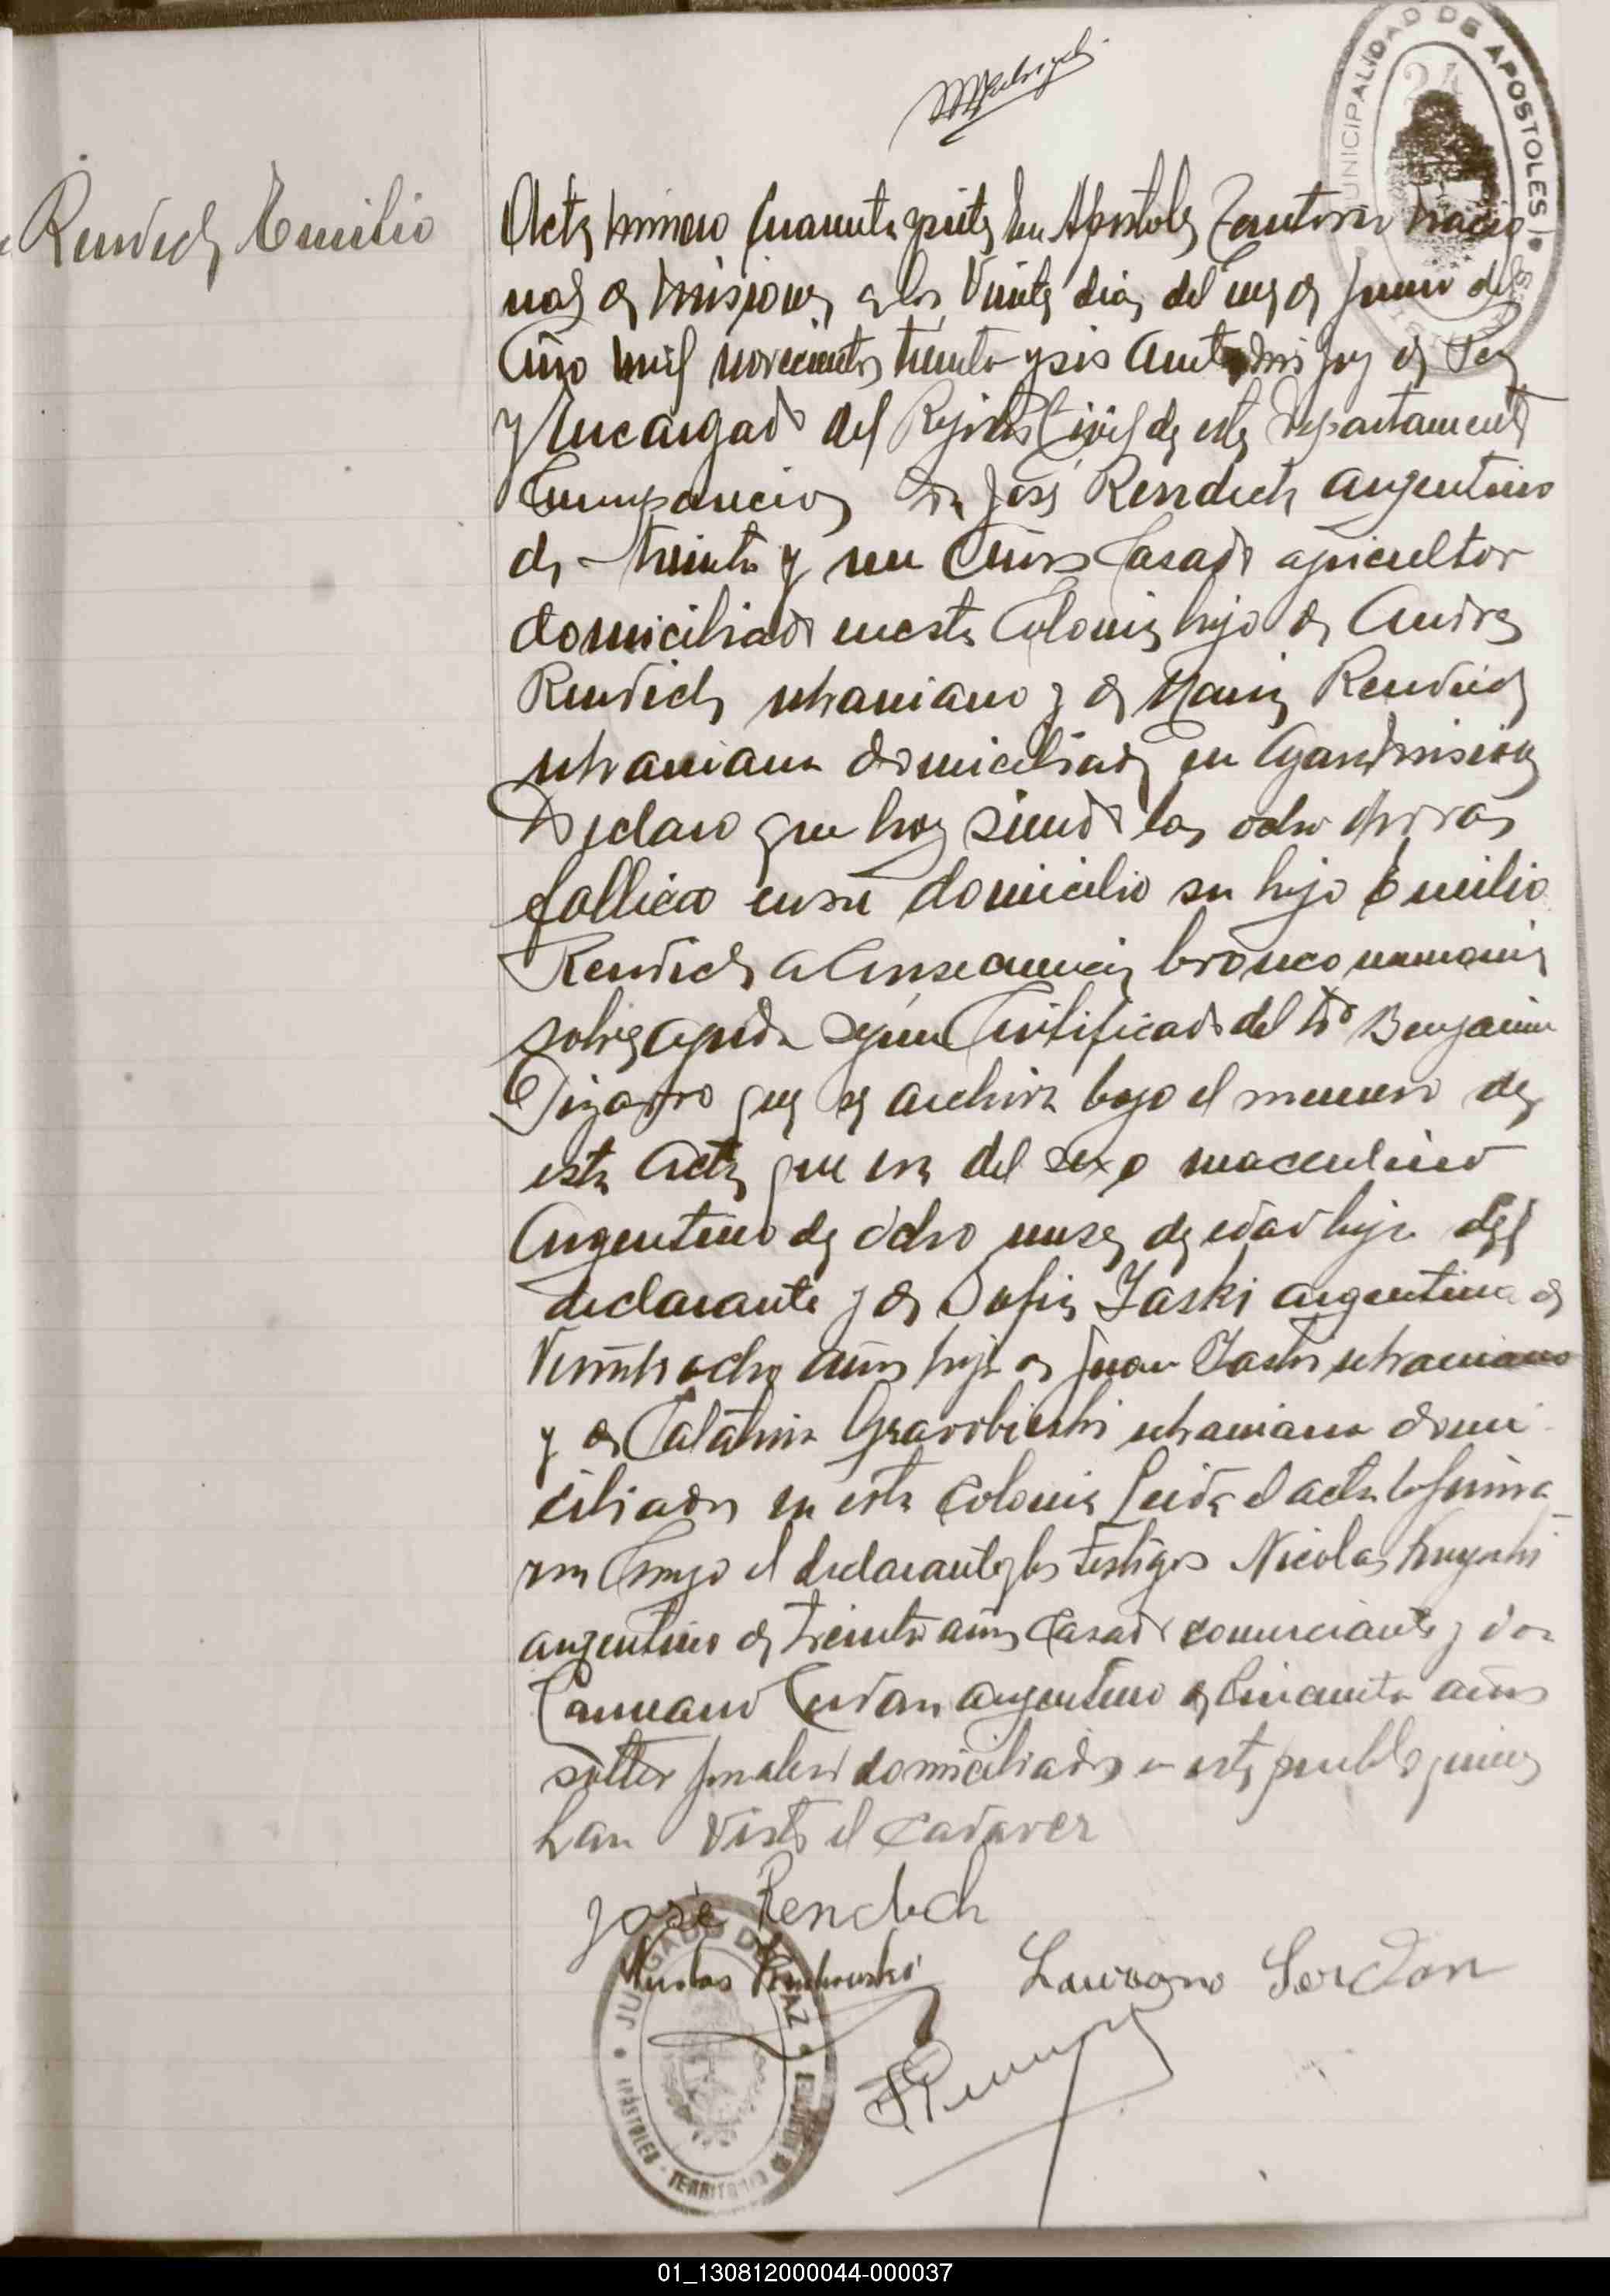 MUNICIPALIDAD DE APOSTOLES
24
Rendich Emilio
Acta número cuarenta y siete En Apostoles Territorio nacio
nal de Misiones a los Veinte dias del mes de Junio del
Año mil novecientos treinta y seis Ante mi Juez de Paz
y Encargado del Rejistro Civil de este Departamento
Comparecio Dn José Rendich argentino
de treinta y un Años Casado agricultor
domiciliado en esta Colonia hijo de Andres
Rendich ukraniano y de Maria Rendich
ukraniana domiciliado en Misiones
Declaro que hoy siendo las ocho horas
fallecio en su domicilio su hijo Emilio
Rendich a Consecuencia bronco neumonia
sobre aguda según Certificado del Dr Benjamin
Pizarro que se archiva bajo el numero de
esta Acta que era del sexo masculino
Argentino de ocho meses de edad hijo del
declarante y de Sofia Zaski argentina de
Veintiocho años hija de Juan Zaski ukraniano
y de Catalina ukraniana domi
ciliados en esta Colonia Leida el acta la firma
ron Conmigo el declarante y los testigos Nicolas
argentino de treinta años Casado comerciante y don
argentino de Cincuenta años
soltero jornalero domiciliados en este pueblo quienes
han visto el cadaver
José Rendich
JUZGADO DE PAZ
APÓSTOLES - TERRITORIO
01_130812000044-000037